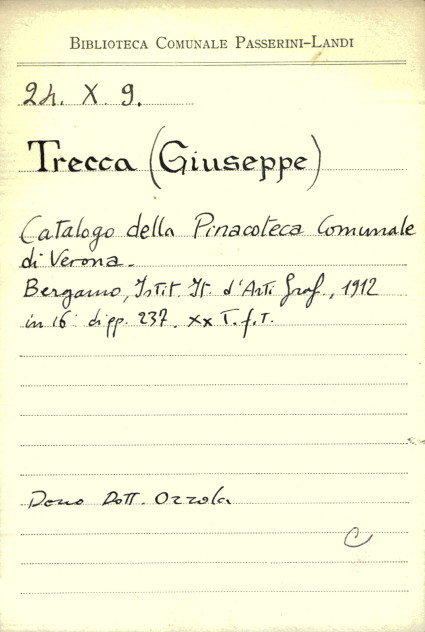 BIBLIOTECA COMUNALE PASSERINI-LANDI
24. X. 9.
Trecca (Giuseppe)
Catalogo della Pinacoteca Comunale
di Verona.
Bergamo, Istit. It. d'Arti Graf., 1912
in 16° di pp. 237. XX T.f.T.
Dono Dott. Ozzola
C